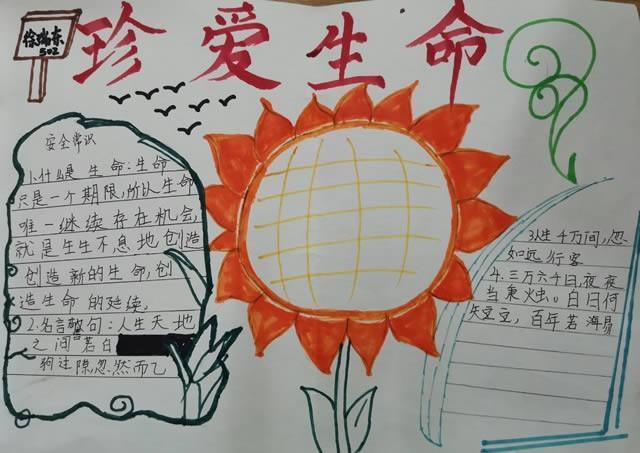 徐瑞东
502
珍爱生命
安全常识
1.什么是生命:生命
只是一个期限,所以生命
唯一继续存在机会,
就是生生不息地创造
创造新的生命,创
造生命的延续,
2.名言警句:人生天地
之间若白
驹过隙,忽然而已
3.人生千万间,忽
如远行客
4.三万六千日,夜夜
当秉烛。白日何
短短,百年若海易